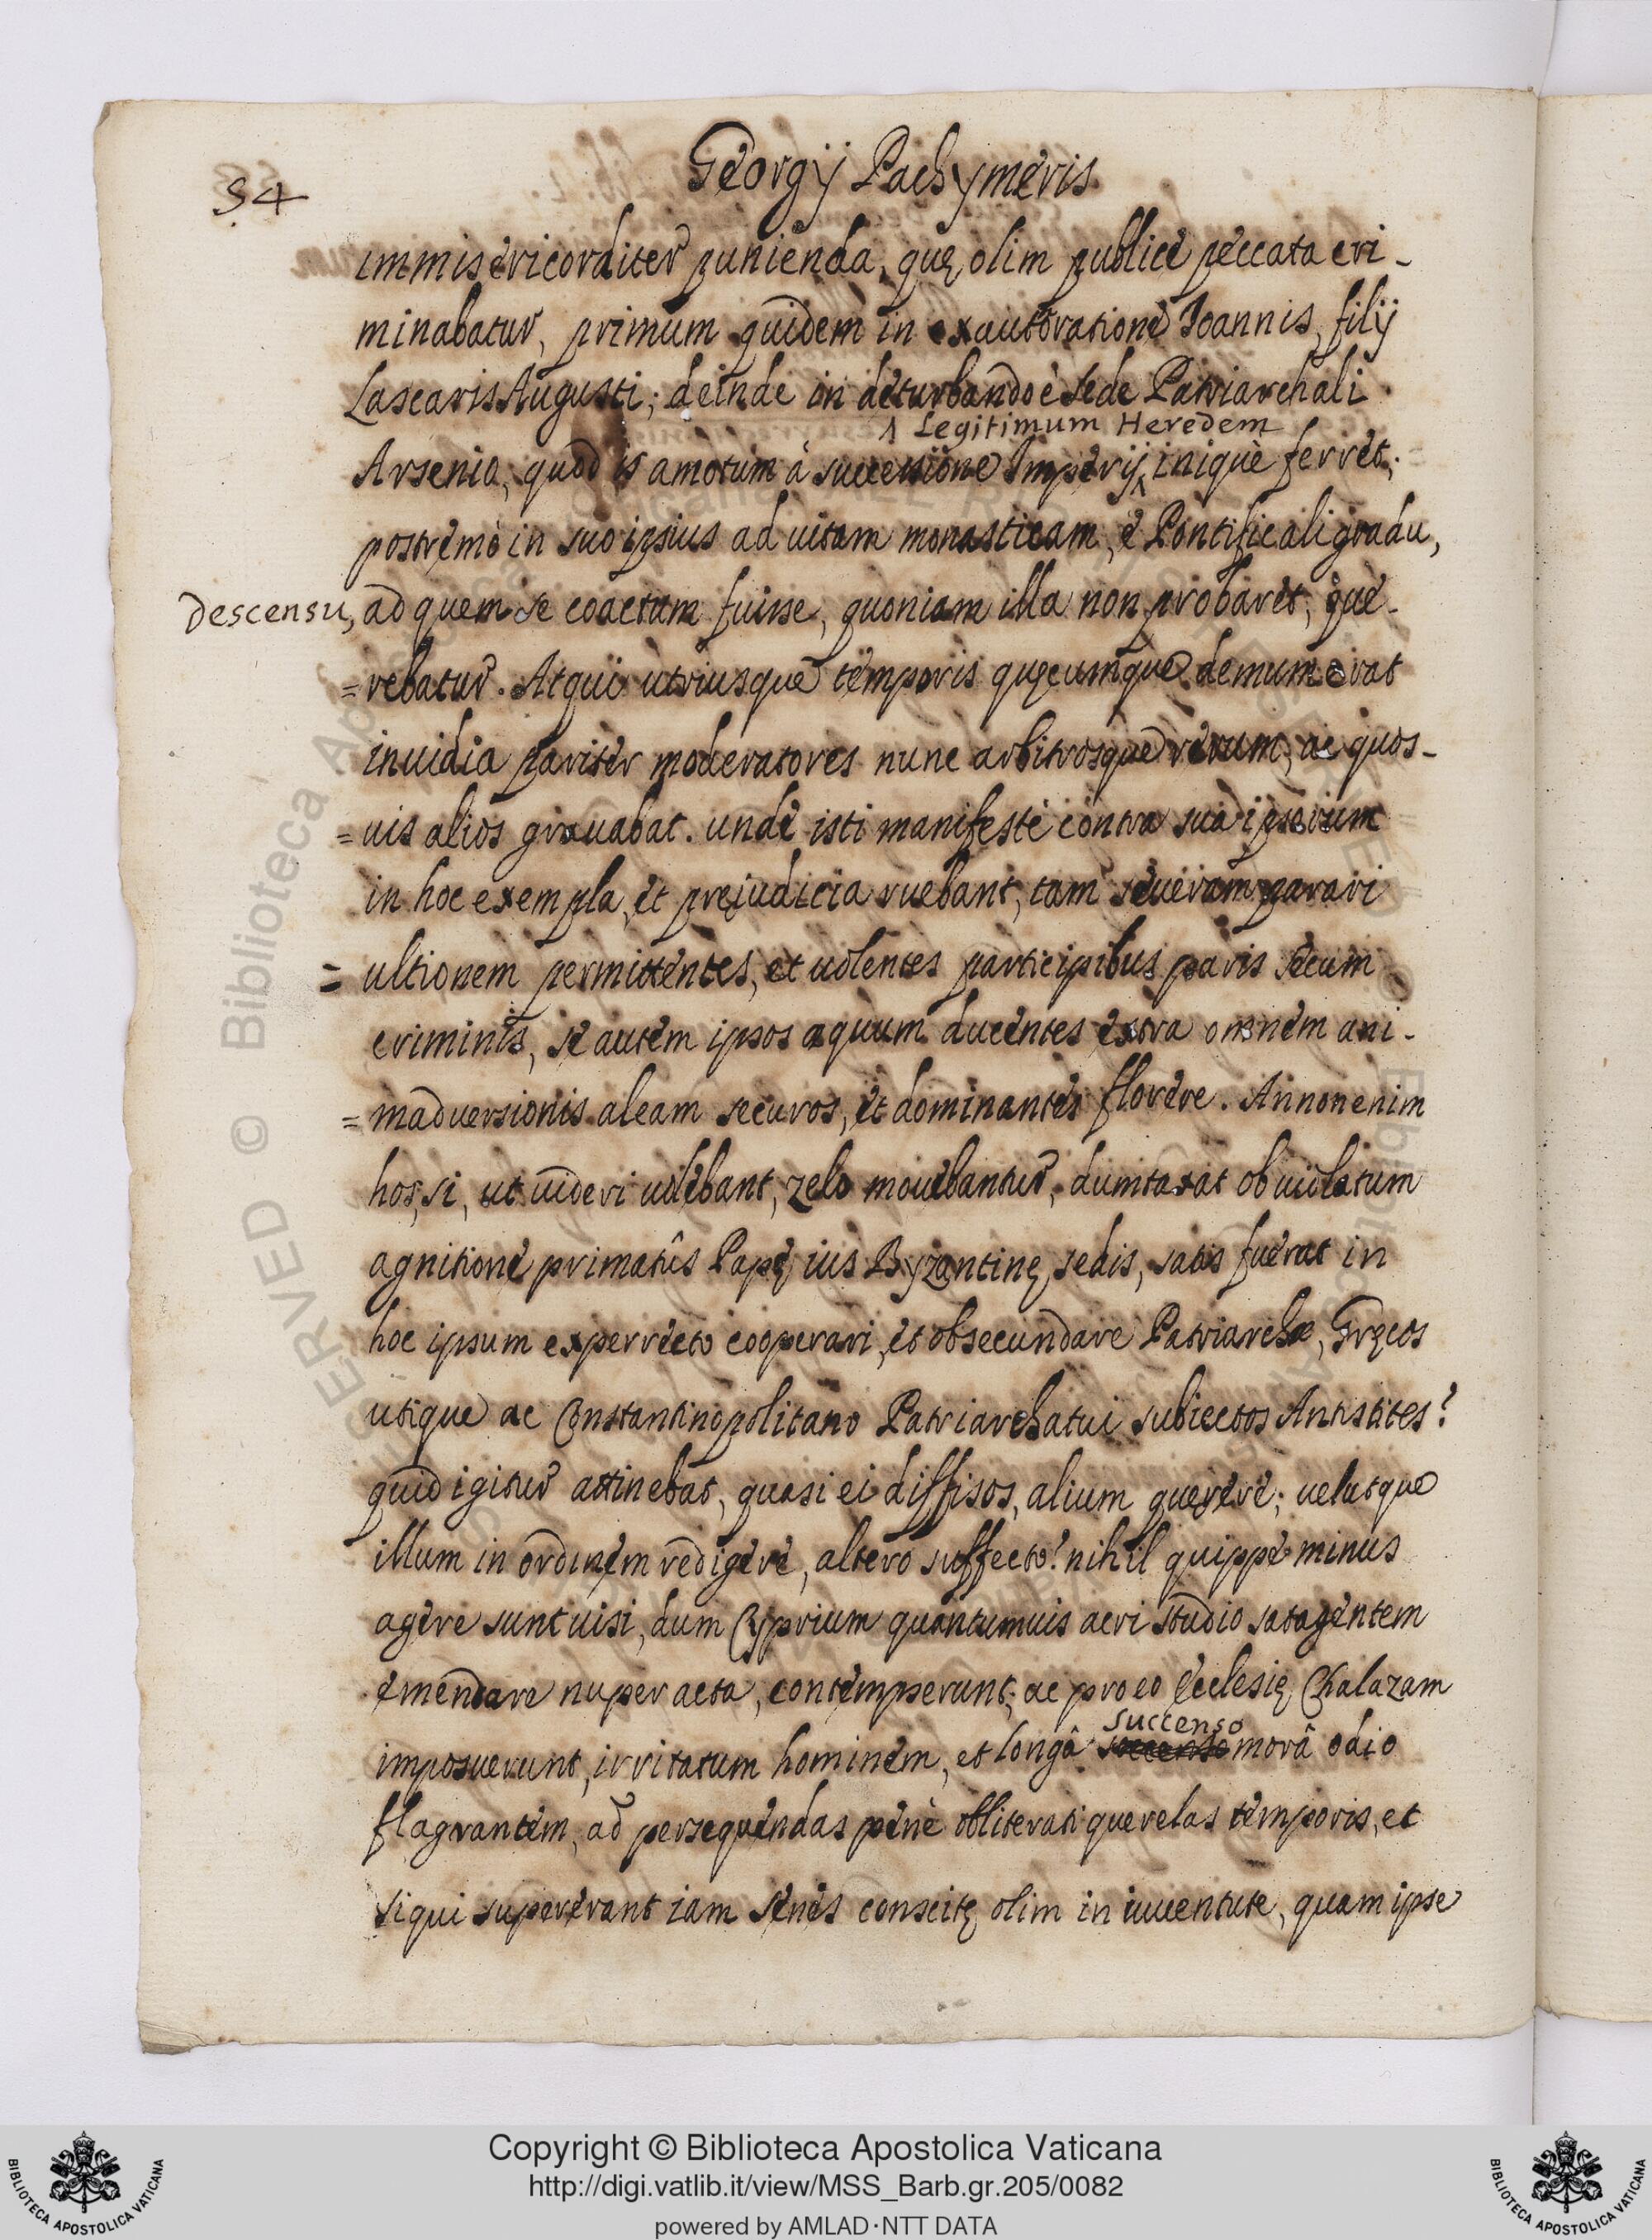 54
Georgij Pachymeris
immisericorditer punienda, quę olim publicè peccata cri-
minabatur, primum quidem in exautoratione Ioannis, filij
Lascaris Augusti; deinde in deturbando è sede Patriarchali
Legitimum Heredem
Arsenio, quod is amotum à successione Imperij, iniquè ferret;
postremò in suo ipsius ad uitam monasticam, è Pontificali gradu,
Descensu, ad quem se coactum fuisse, quoniam illa non probaret, què-
=rebatur. Atqui utriusque temporis quęcumque demum erat
inuidia pariter moderatores nunc arbitrosque rerum, ac quos-
=uis alios grauabat. unde isti manifestè contra sua ipsorum
in hoc exempla, et pręiudicia ruebant, tam seueram parari
=ultionem permittentes, et uolentes participibus paris secum
criminis, se autem ipsos aquum ducentes extra omnem ani-
=maduersionis aleam securos, et dominantes florere. Annon enim
hos, si, ut uideri uolebant, zelo mouebantur, dumtaxat ob uiolatum
agnitione primatûs Papę ius Byzantinę sedis, satis fuerat in
hoc ipsum experrecto cooperari, et obsecundare Patriarchæ, Gręcos
utique ac Constantinopolitano Patriarchatui subiectos Antistites?
quid igitur attinebat, quasi ei diffisos, alium quęrere; uelutque
illum in ordinem redigere, altero suffecto? nihil quippe minus
agere sunt uisi, dum Cyprium quantumuis acri studio satagentem
emendare nuper acta, contempserunt; ac pro eo Ecclesię Chalazam
succenso
imposuerunt, irritatum hominem, et longâ morâ odio
flagrantem, ad persequendas penè obliterati querelas temporis, et
siqui supererant iam senes conscitę olim in iuuentute, quam ipse
Copyright © Biblioteca Apostolica Vaticana
http://digi.vatlib.it/view/MSS_Barb.gr.205/0082
powered by AMLAD·NTT DATA
BIBLIOTECA APOSTOLICA VATICANA
BIBLIOTECA APOSTOLICA VATICANA